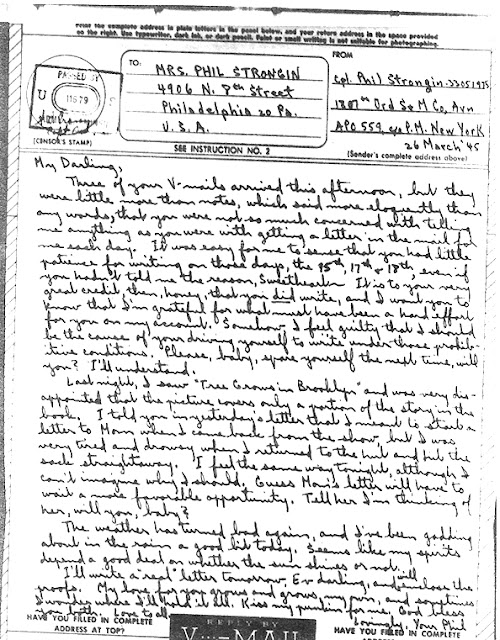 Print the complete address in plain letters in the panel below, and your return address in the space provided
on the right. Use typewriter, dark ink, or dark pencil. Faint or small writing is not suitable for photographing.
TO:
MRS. PHIL STRONGIN
4906 N. 8th Street
Philadelphia 20 Pa.
U.S.A.
FROM
Cpl. Phil Strongin-33051975
Ord S & M Co. Avn
APO 559, c/o P.M. New York
26 March '45
PASSED BY
(CENSOR'S STAMP)
SEE INSTRUCTION NO. 2
(Sender's complete address above)
My Darling,
Three of your V-mails arrived this afternoon, but they
were little more than notes, which said more eloquently than
any words, that you were not so much concerned with telling
me anything as you were with getting a letter in the mail for
me each day. It was easy for me to sense that you had little
patience for writing on those days, the 15th, 17th & 18th, even if
you hadn't told me the reason, Sweetheart. It is to your very
great credit then, honey, that you did write, and I want you to
know that I'm grateful for what must have been a hard effort
for you on my account. Somehow I feel guilty that I should
be the cause of your driving yourself to write under those prohib-
itive conditions. Please, baby, spare yourself the next time, will
you? I'll understand.
Last night, I saw "Tree Grows in Brooklyn" and was very dis-
appointed that the picture covers only a portion of the story in the
book. I told you in yesterday's letter that I meant to start a
letter to Mom when I came back from the show, but I was
very tired and drowsy when I returned to the hut and hit the
sack straightaway. I feel the same way tonight, although I
can't imagine why I should. Guess Mom's letter will have to
wait a more favorable opportunity. Tell her I'm thinking of
her, will you, baby?
The weather has turned bad again, and I've been gadding
about in the rain a good bit today. Seems like my spirits
depend a good deal on whether the sun shines or not.
I'll write a "real" letter tomorrow, Ev darling, and will enclose the
proofs. My love for you grows and grows, my own, and sometimes
I wonder where I hold it all. Kiss my punkin for me. God bless
both. Love to all.
Lovingly, Your Phil
HAVE YOU FILLED IN COMPLETE
ADDRESS AT TOP?
REPLY BY
V···-MAIL
HAVE YOU FILLED IN COMPLETE
ADDRESS AT TOP?